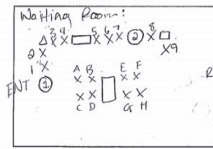 Waiting Room:
3 4 5 6 7 ② 8
X X X X X X
2 X X9
1 X A B E F
ENT ① X X X X
X X X X
C D G H
R